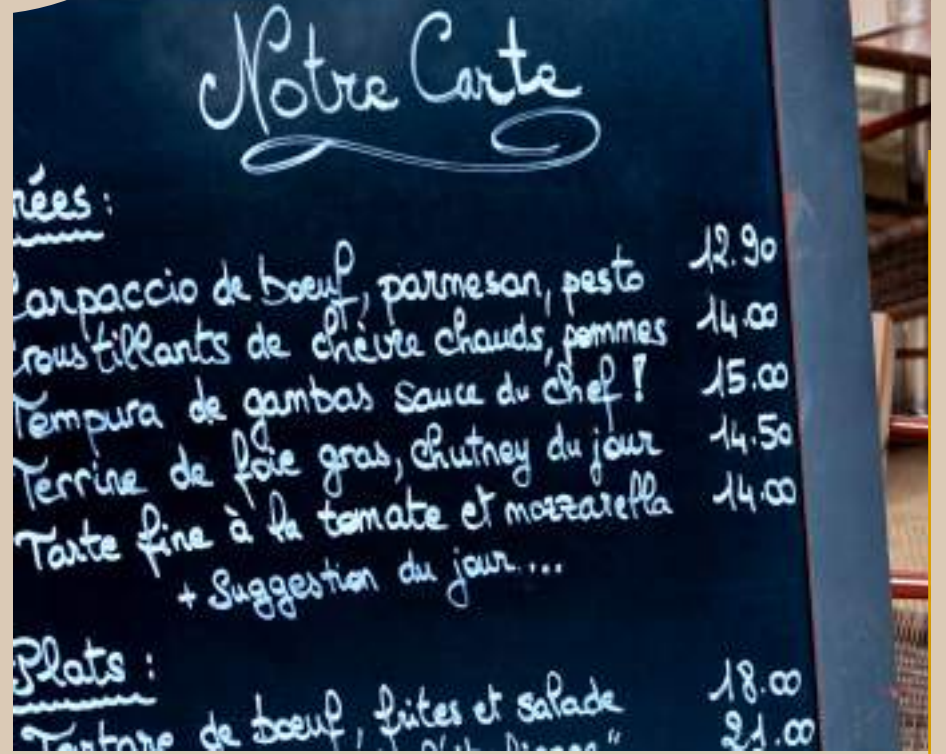 Notre Carte
rées :
Carpaccio de boeuf, parmesan, pesto 12.90
croustillants de chèvre chauds, pommes 14.00
Tempura de gambas sauce du chef ! 15.00
Terrine de foie gras, chutney du jour 14.50
Tarte fine à la tomate et mozzarella 14.00
+ Suggestion du jour....
Plats :
Tartare de boeuf, frites et salade 18.00
21.00